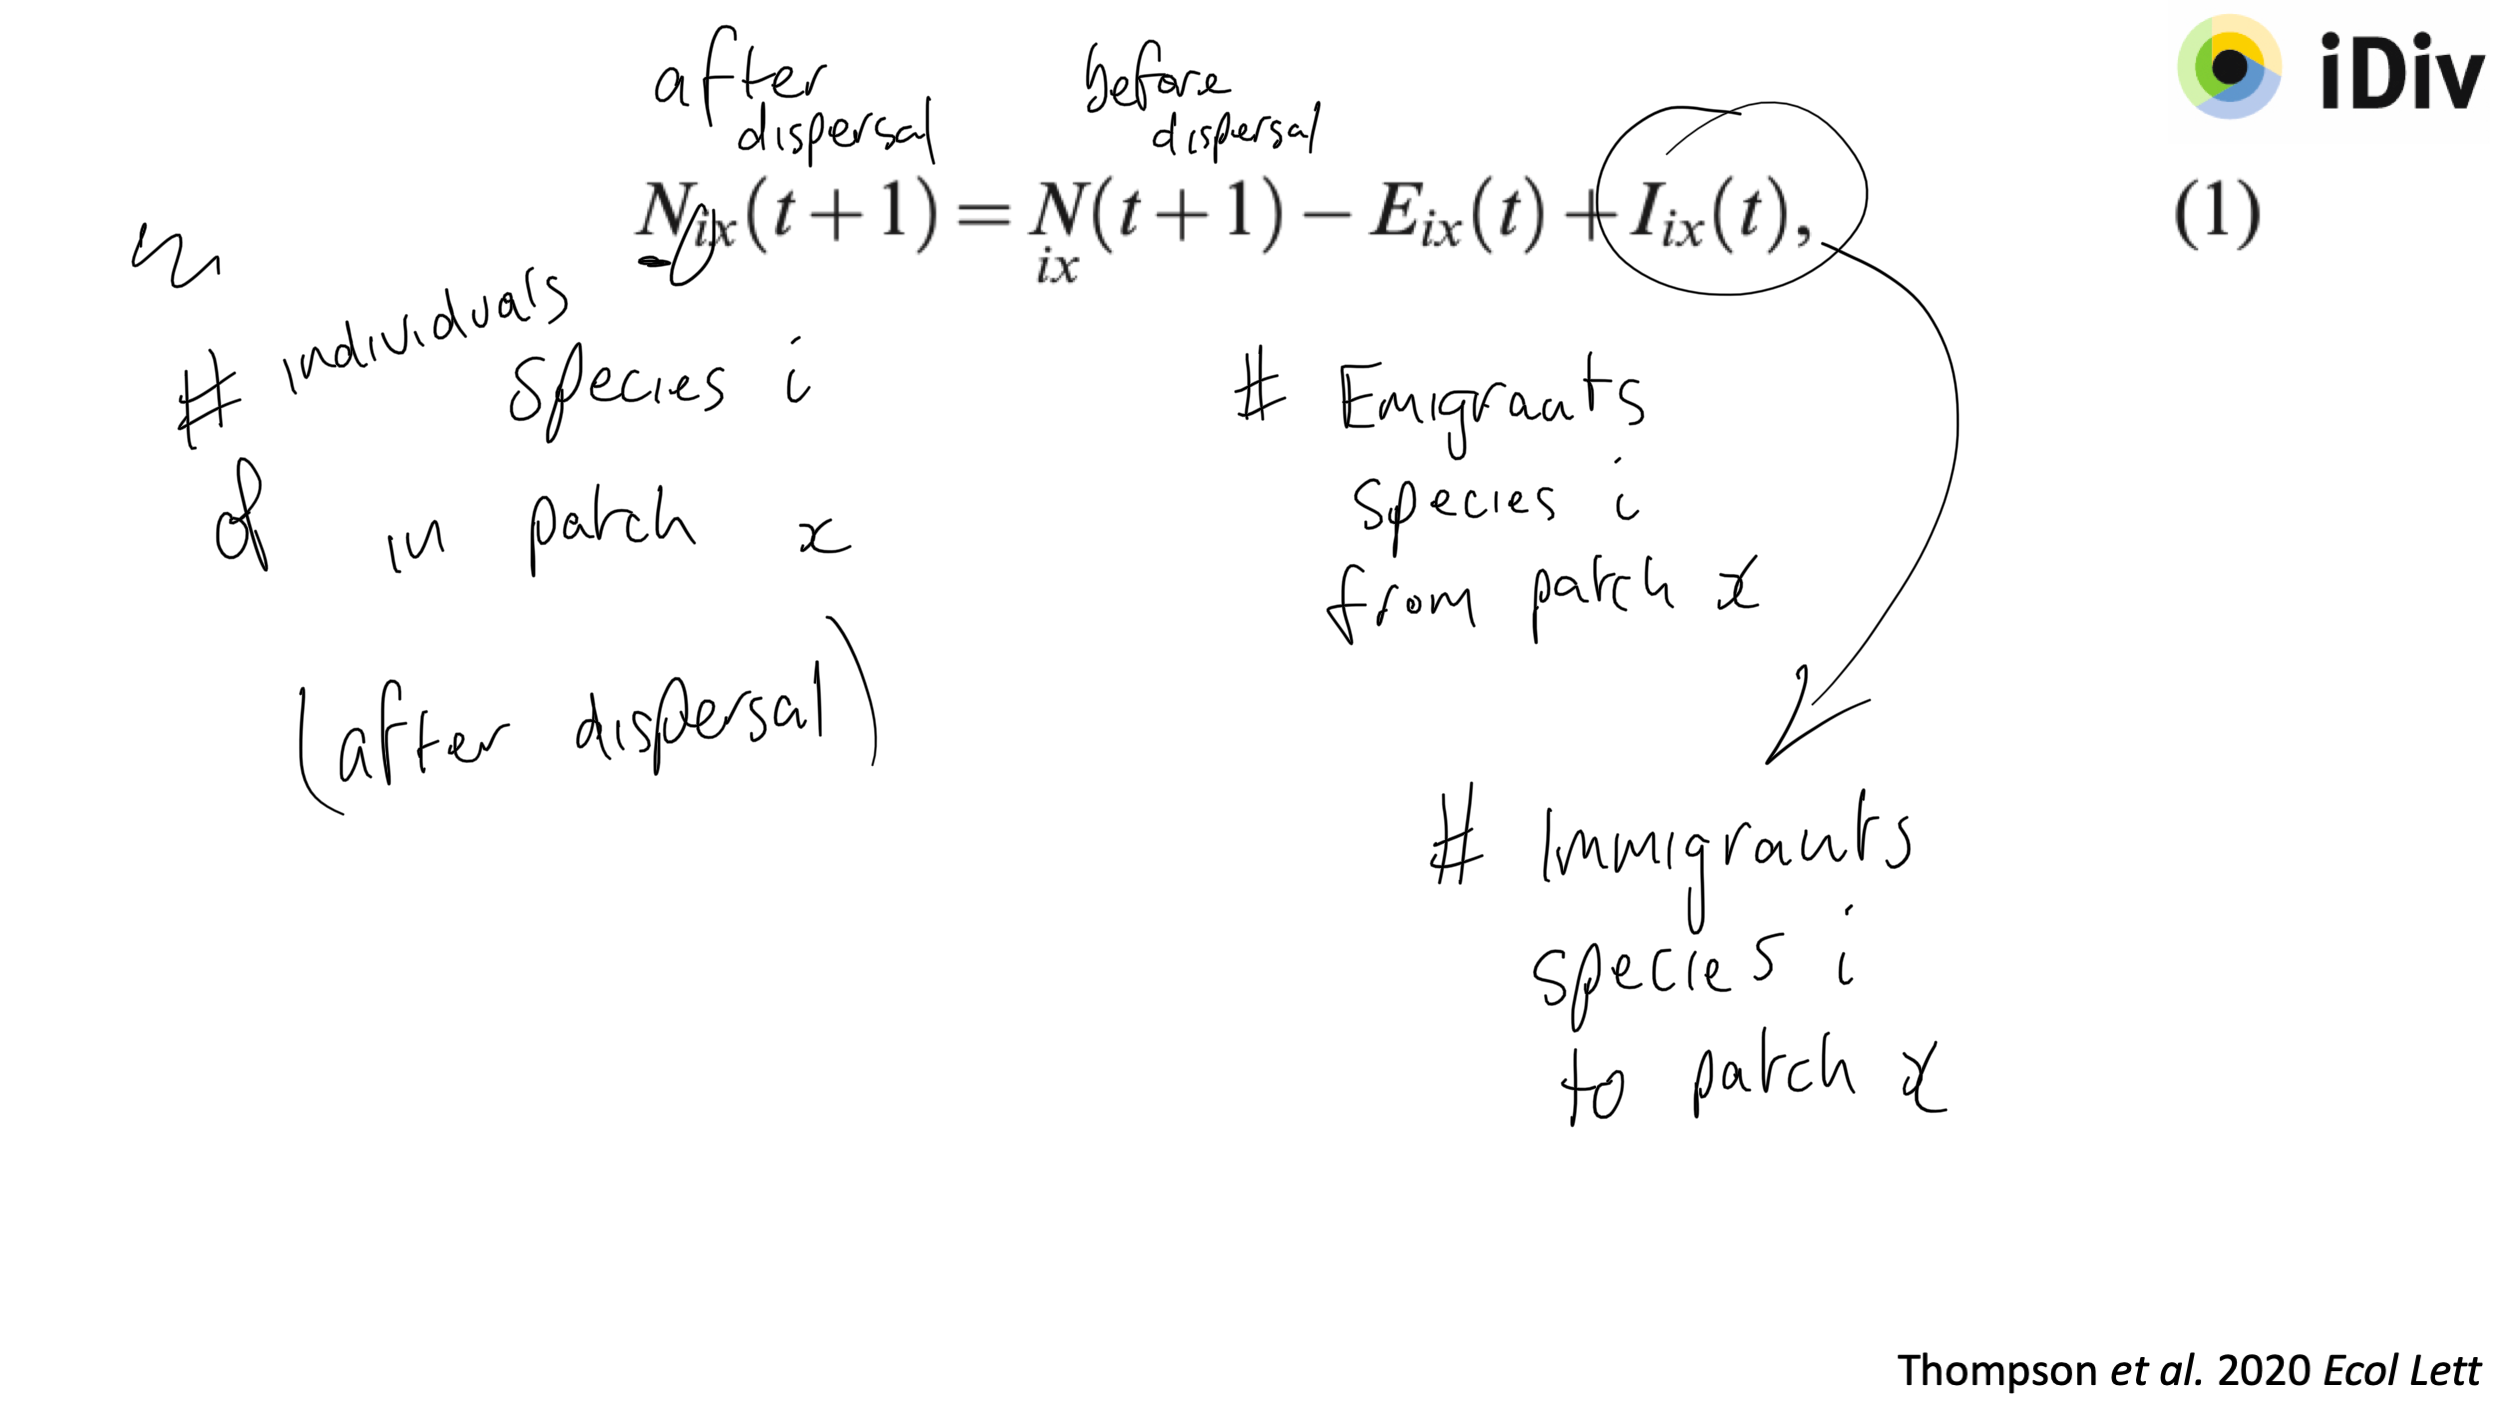 after
dispersal
before
dispersal
iDiv
N_{ix}(t + 1) = N_{ix}(t + 1) − E_{ix}(t) + I_{ix}(t), (1)
# individuals
of species i
in patch x
(after dispersal)
# Emigrants
species i
from patch x
# Immigrants
species i
to patch x
Thompson et al. 2020 Ecol Lett